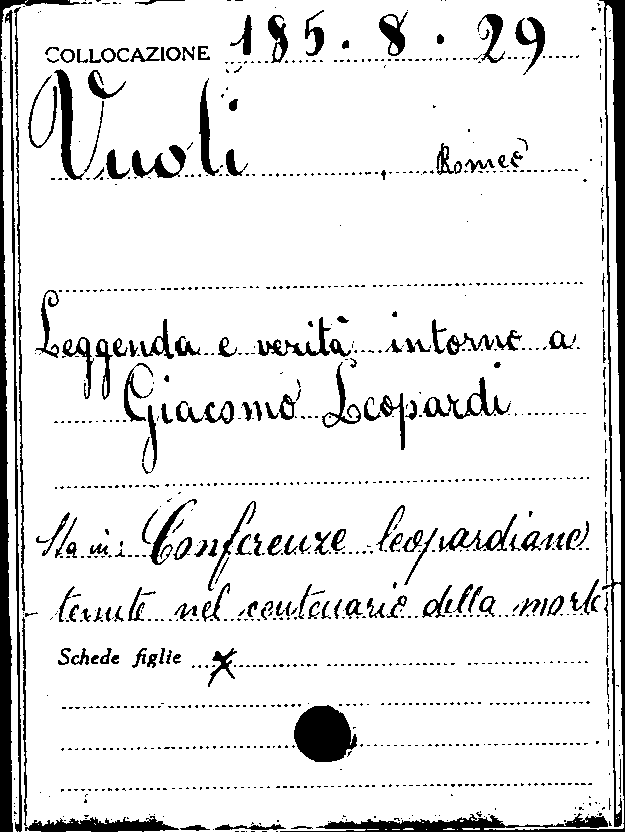 COLLOCAZIONE 185.8.29
Vuoli, Romeo
Leggenda e verità intorno a
Giacomo Leopardi
Sta in: Conferenze leopardiane
tenute nel centenario della morte
Schede figlie x